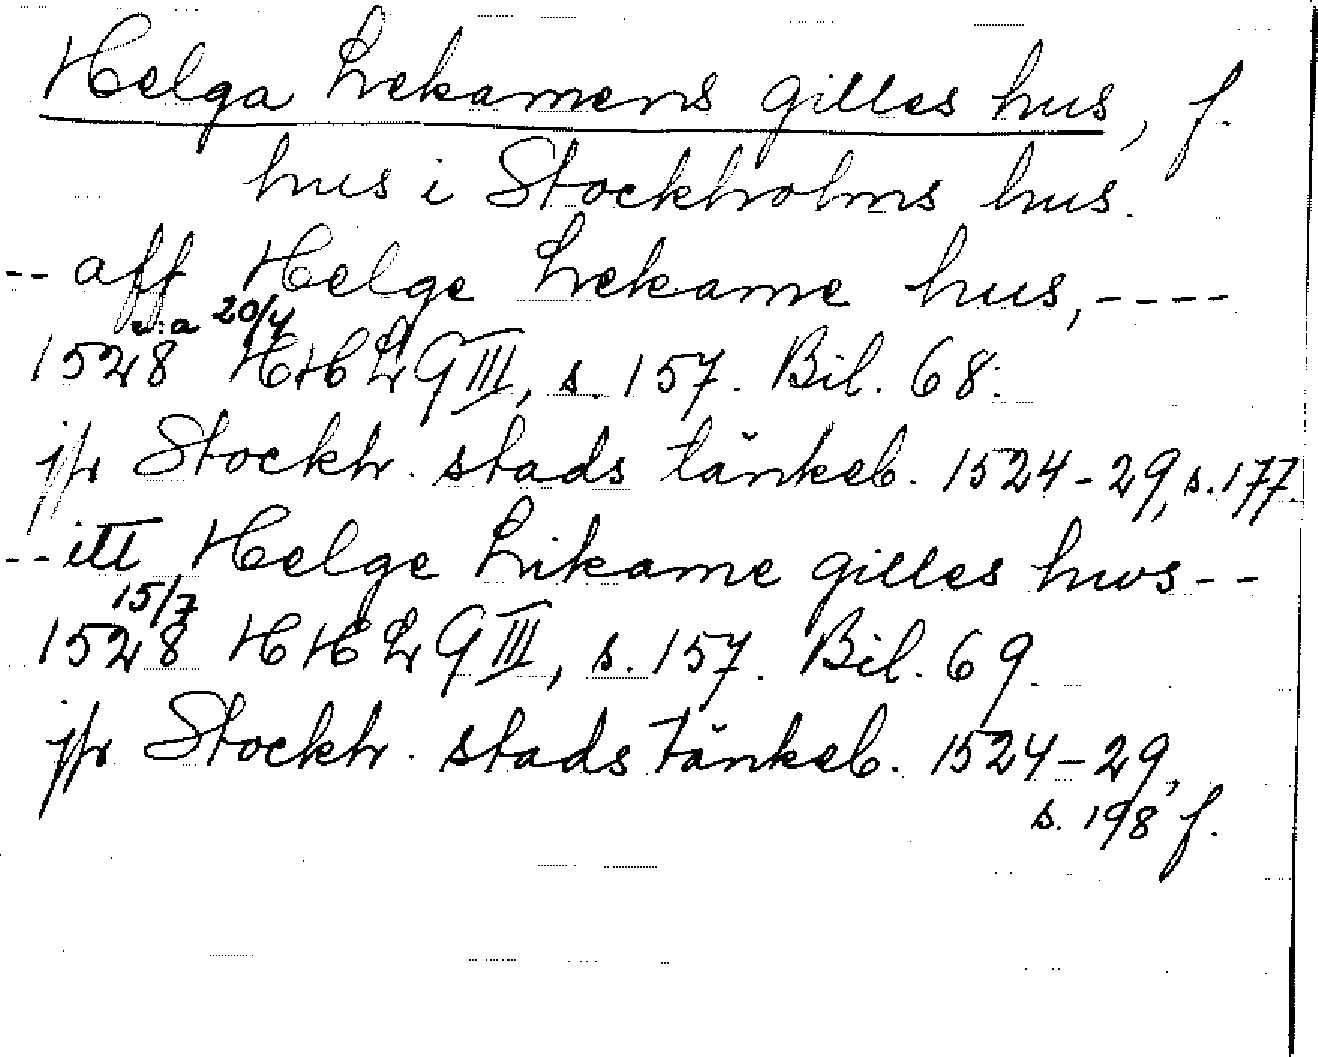 Helga Lekamens gilles hus, f.
hus i Stockholms hus.
-- aff Helge Lekame hus, ----
c:a 20/4
1528 HHL 9 III, s. 157. Bil. 68.
jfr Stockh. stads tänkeb. 1524-29, s. 177.
-- itt Helge Likame gilles hws --
15/7
1528 HHL 9 III, s. 157. Bil. 69.
jfr Stockh. stads tänkeb. 1524-29,
s. 198 f.